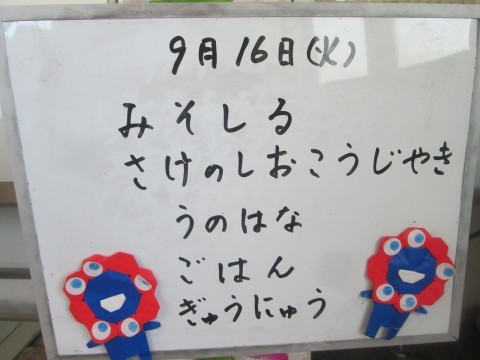 9月16日(火)
みそしる
さけのしおこうじやき
うのはな
ごはん
ぎゅうにゅう